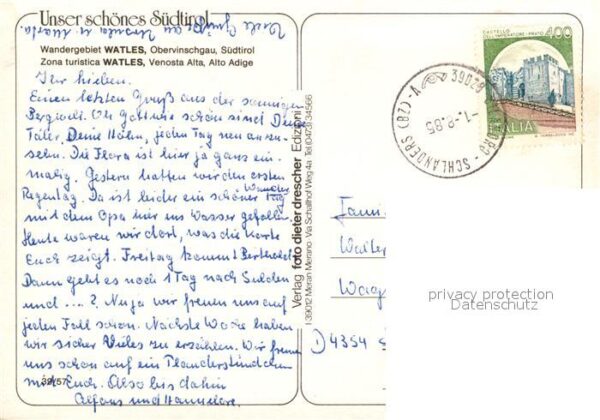 Unser schönes Südtirol
Viele Grüße an Ursula u. Maria.
Wandergebiet WATLES, Obervinschgau, Südtirol
Zona turistica WATLES, Venosta Alta, Alto Adige
Ihr Lieben.
Einen letzten Gruß aus der sonnigen
Bergwelt. Oh Gott wie schön sind Deine
Täler, Deine Höhn, jeden Tag neu anzu-
sehn. Die Flora ist hier ja ganz ein-
malig. Gestern hatten wir den ersten
Regentag. Da ist leider ein schöner Wander Tag
mit dem Opa hier ins Wasser gefallen.
Heute waren wir dort, was die Karte
Euch zeigt. Freitag kommt Berthold.
Dann geht es noch 1 Tag nach Sulden
und ...? Naja wir freuen uns auf
jeden Fall schon. Nächste Woche haben
wir sicher Vieles zu erzählen. Wir freuen
uns schon auf ein Plauderstündchen
mit Euch. Also bis dahin
Alfons und Hannelore.
39/57
Verlag foto dieter drescher Edizioni
I-39012 Meran Merano · Via Schaffhof Weg 4a · Tel. 0473/34566
CASTELLO
DELL'IMPERATORE - PRATO
400
ITALIA
39028
SCHLANDERS (BZ) - A
-1.-8.85
Fami
Walter
D 4354
privacy protection
Datenschutz